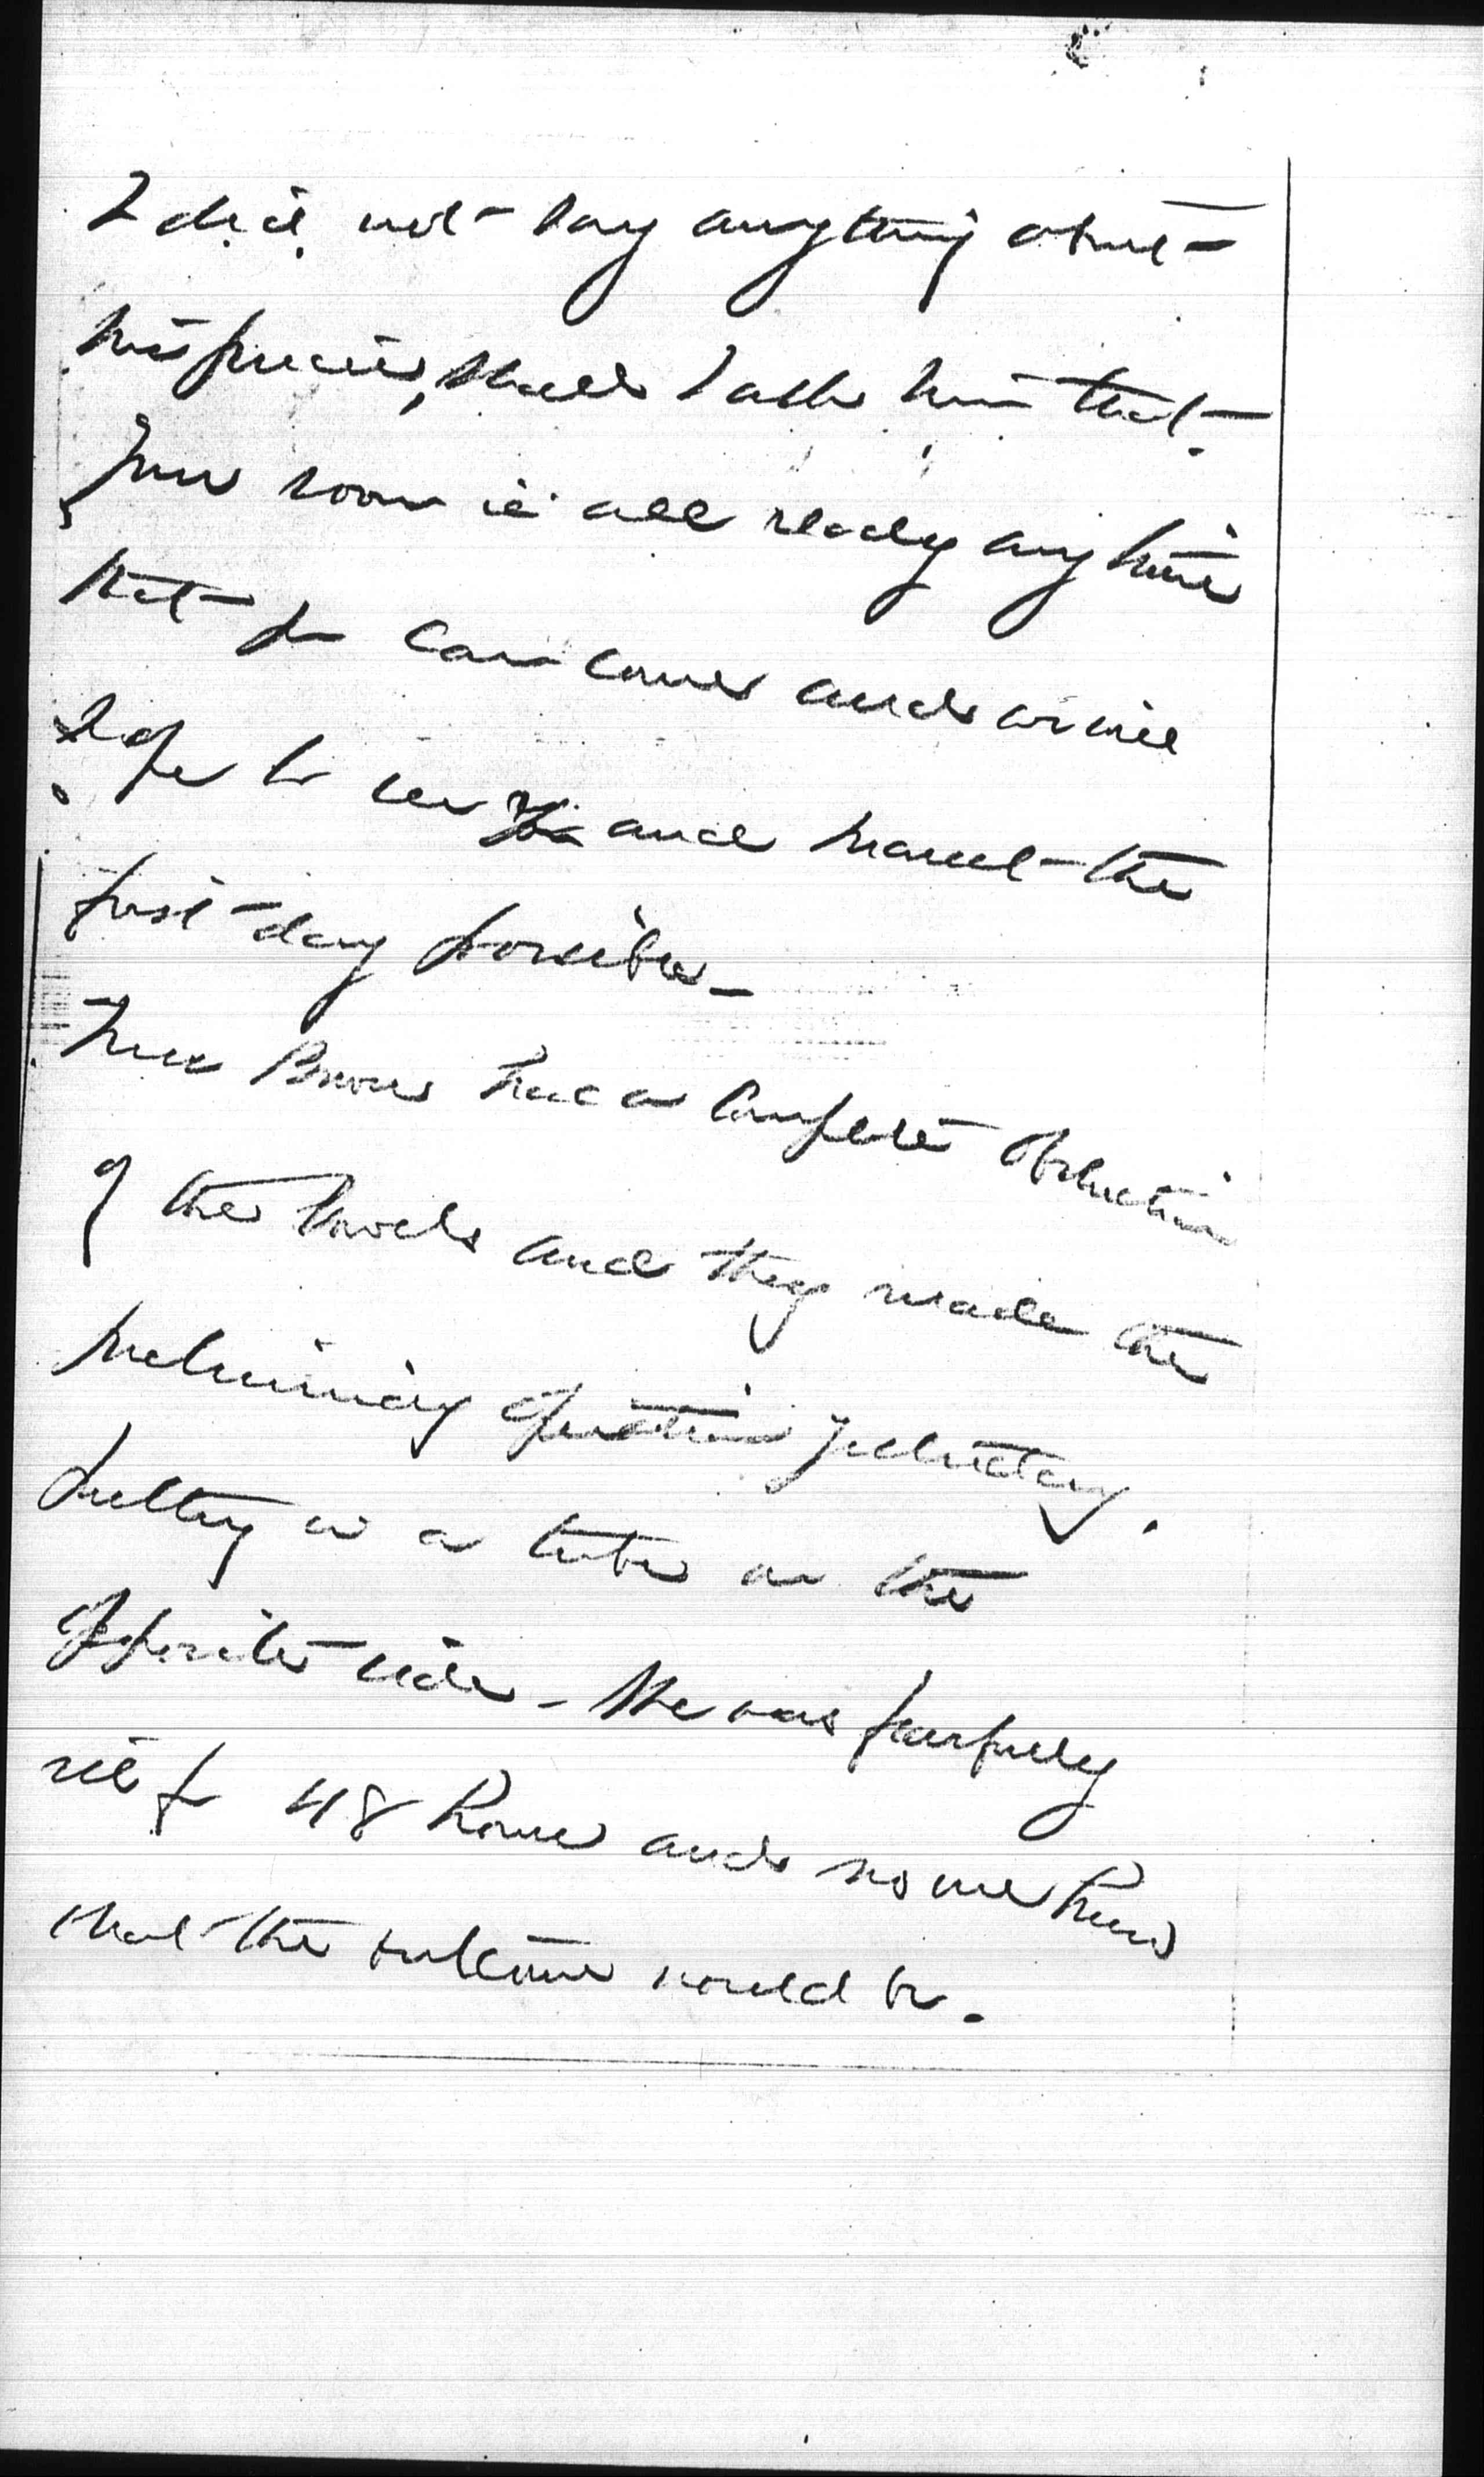 I did not say anything about
his prices, shall I ask him that.
Your room is all ready any time
that you can come and we will
hope to see you and Marcel the
first day possible –
Miss Brown had a complete obstruction
of the bowels and they made the
preliminary operation yesterday.
putting in a tube on the
opposite side – She was fearfully
sick for 48 hours and no one knew
what the outcome would be.